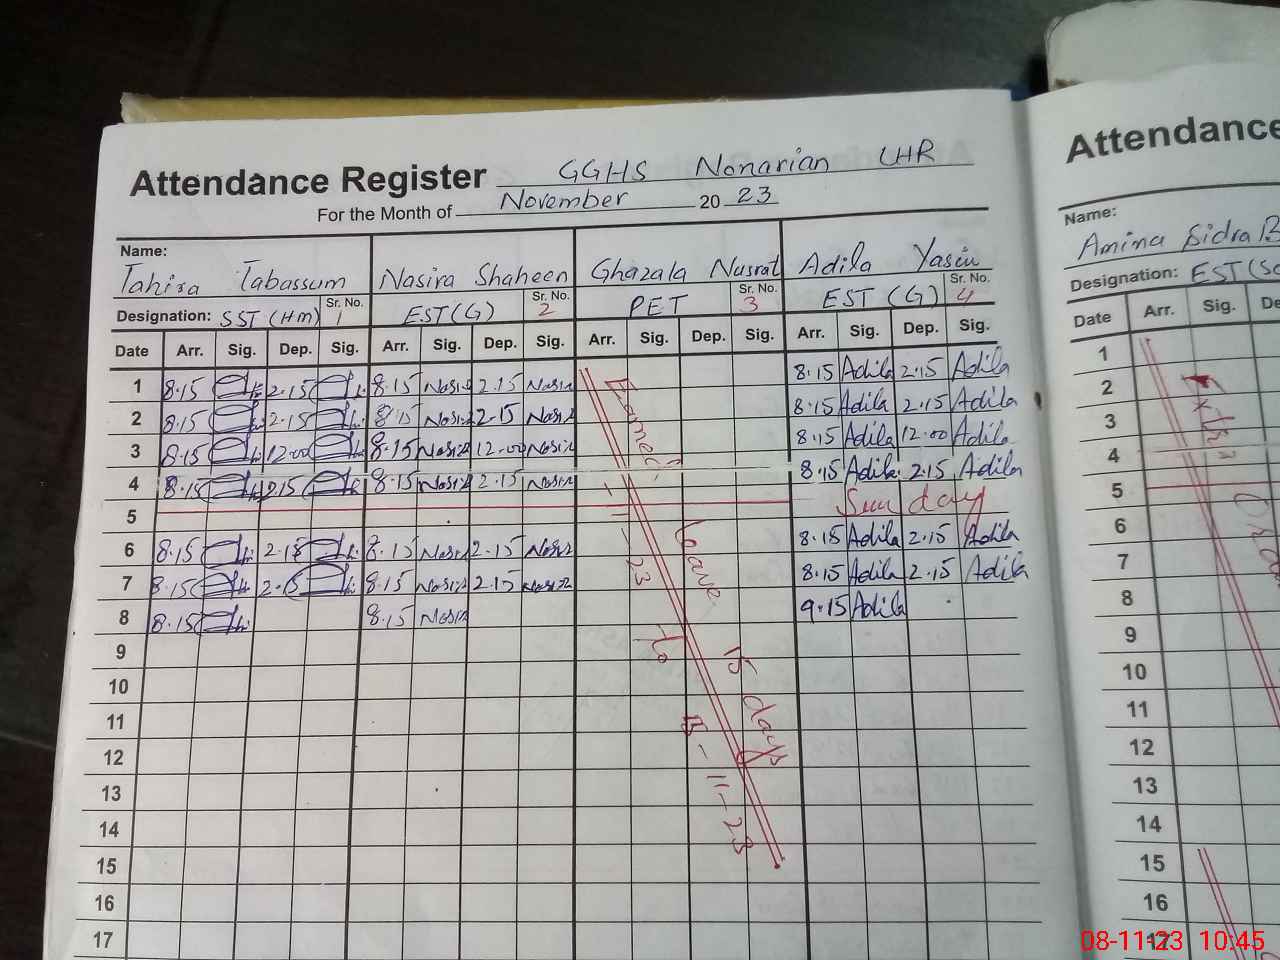 Attendance Register GGHS Nonarian LHR
For the Month of November 20 23
Name:
Tahira Tabassum Nasira Shaheen Ghazala Nusrat Adila Yasin
Designation: SST (HM) Sr. No. 1 EST(G) Sr. No. 2 PET Sr. No. 3 EST (G) Sr. No. 4
Date Arr. Sig. Dep. Sig. Arr. Sig. Dep. Sig. Arr. Sig. Dep. Sig. Arr. Sig. Dep. Sig.
1 8.15 2.15 8.15 Nasir 2.15 Nasir 8.15 Adila 2.15 Adila
2 8.15 2.15 8.15 Nasir 2.15 Nasir 8.15 Adila 2.15 Adila
3 8.15 12.00 8.15 Nasir 12.00 Nasir 8.15 Adila 12.00 Adila
4 8.15 2.15 8.15 Nasir 2.15 Nasir 8.15 Adila 2.15 Adila
5 Sunday
6 8.15 2.15 8.15 Nasir 2.15 Nasir 8.15 Adila 2.15 Adila
7 8.15 2.15 8.15 Nasir 2.15 Nasir 8.15 Adila 2.15 Adila
8 8.15 8.15 Nasir 9.15 Adila
9
10
11
12
13
14
15
16
17
Earned leave 15 days
1-11-23 to 15-11-23
Attendance
Name:
Amina Sidra B
Designation: EST(Sc
Date Arr. Sig. De
1
2
3
4
5
6
7
8
9
10
11
12
13
14
15
16
17
08-11-23 10:45